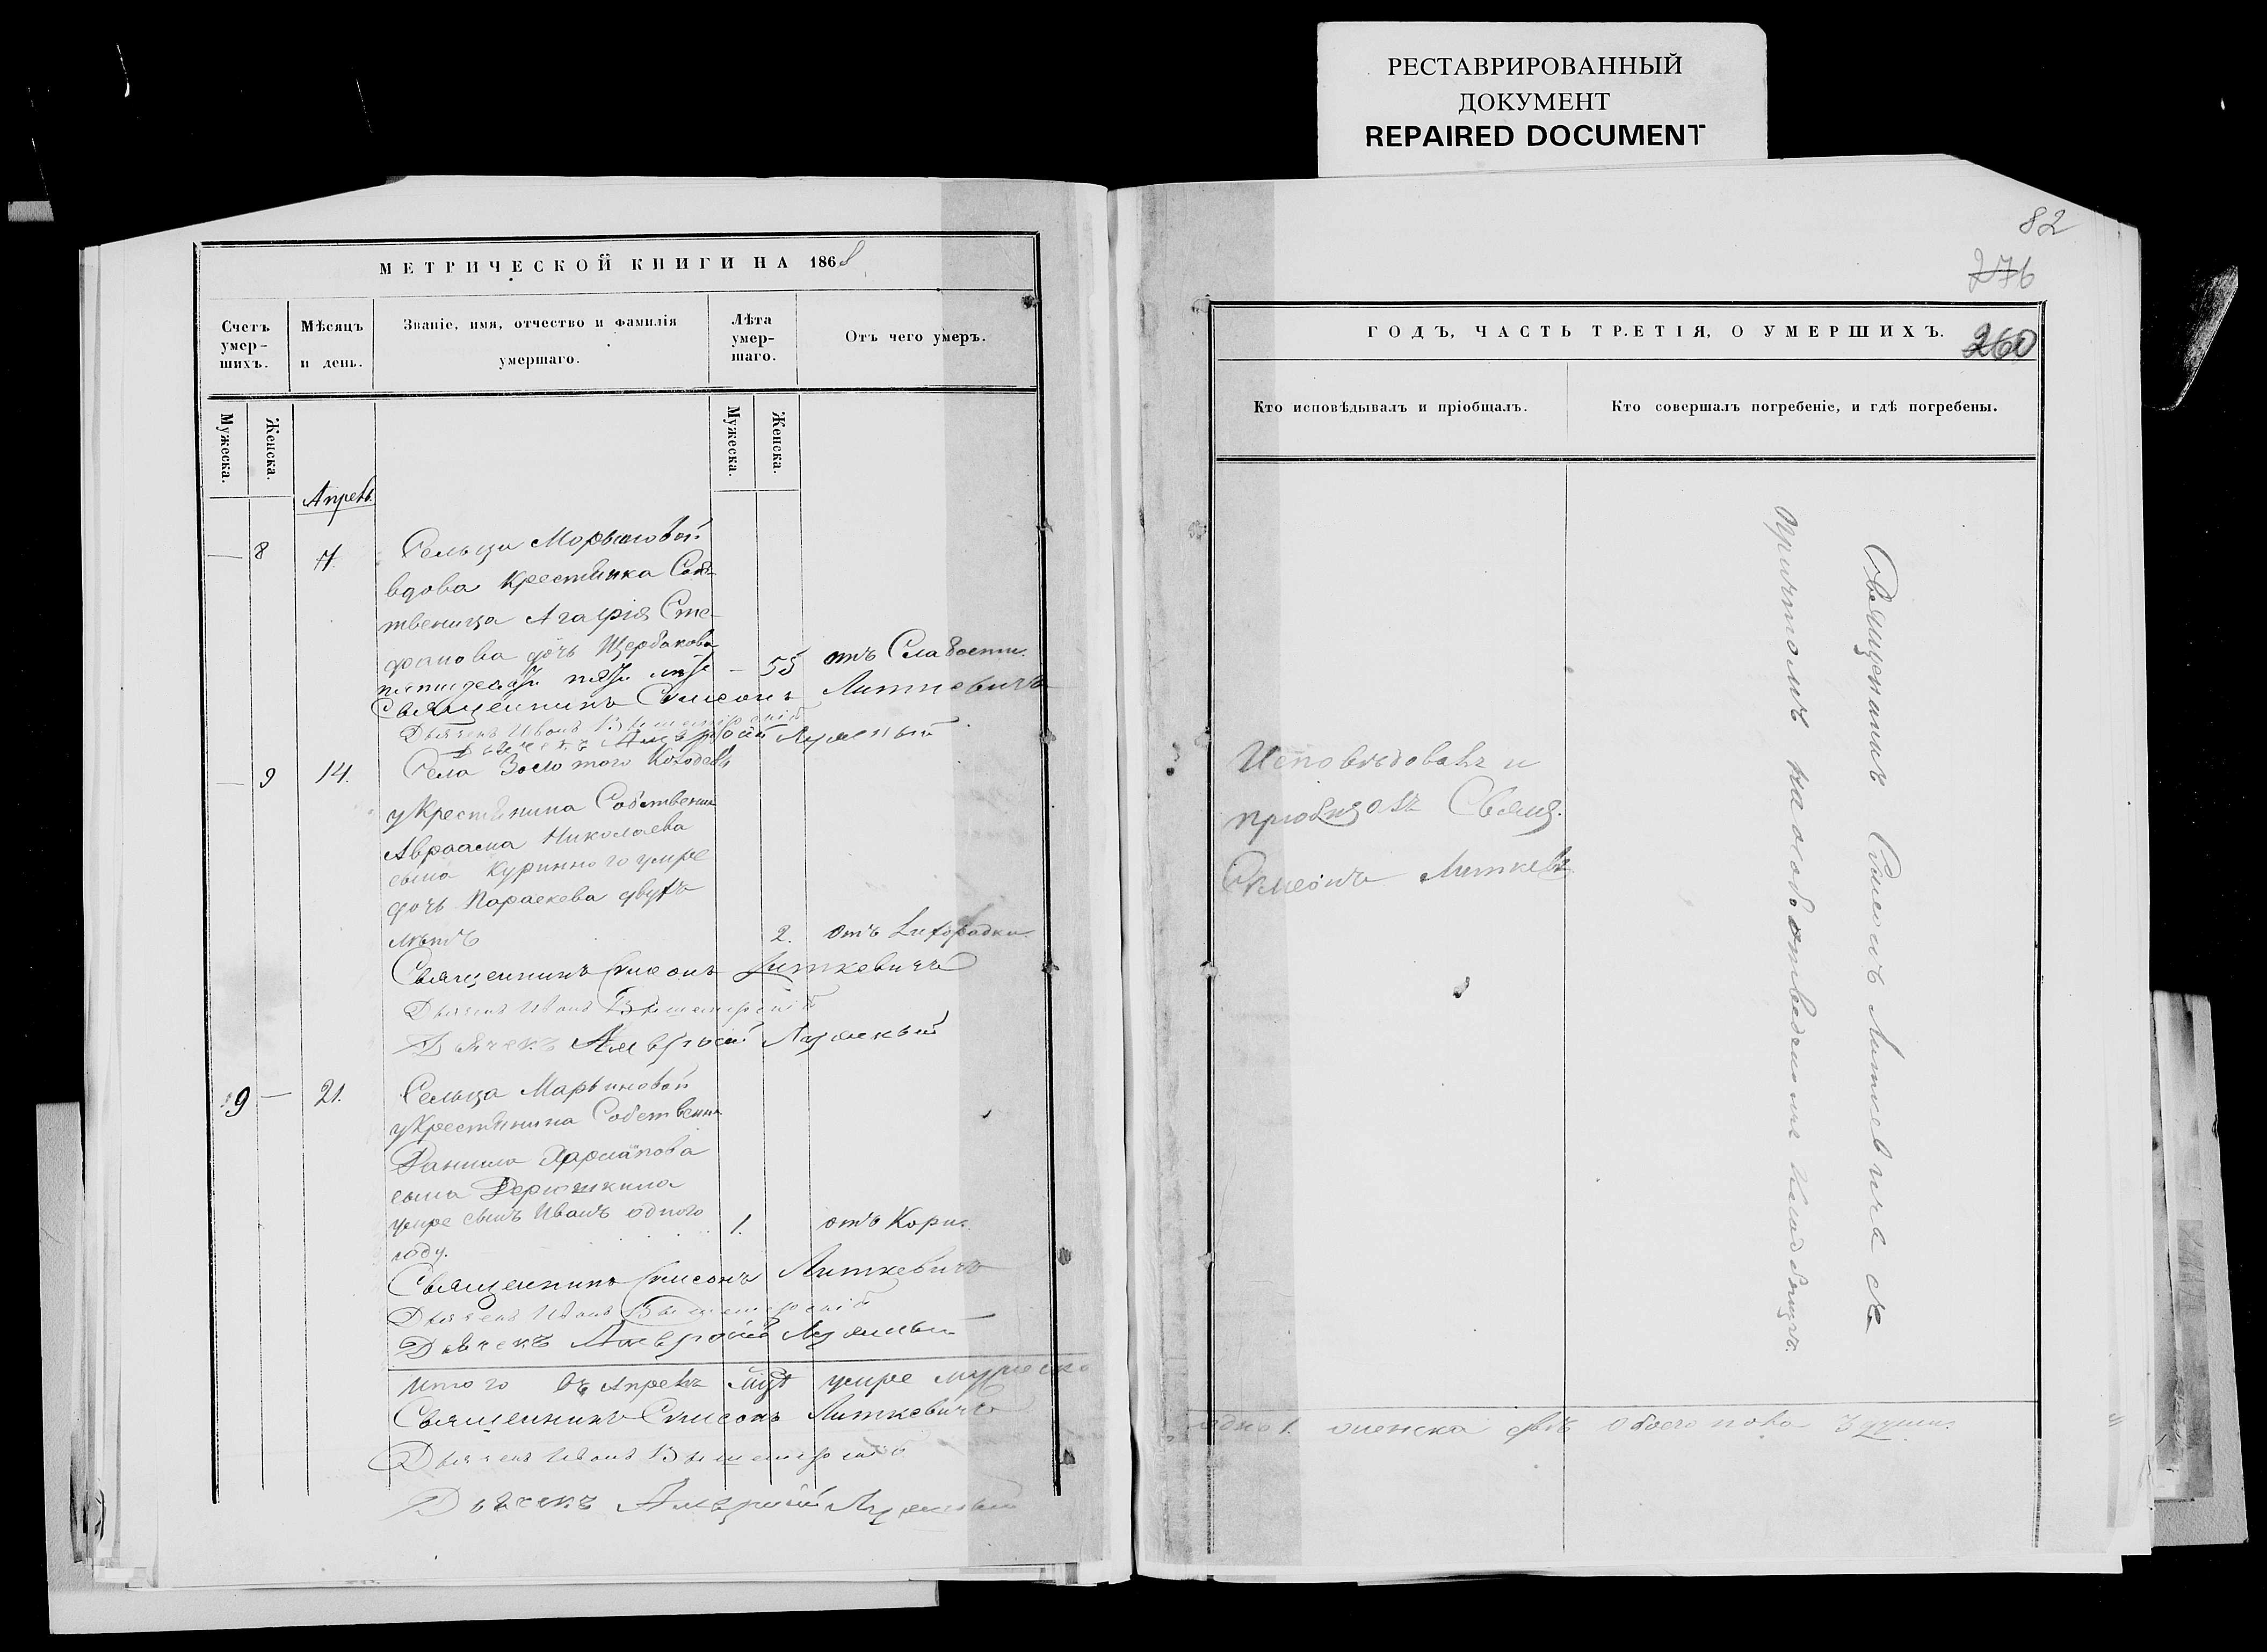 РЕСТАВРИРОВАННЫЙ
ДОКУМЕНТ
REPAIRED DOCUMENT
МЕТРИЧЕСКОЙ КНИГИ НА 1868
Счетъ умер-шихъ.
Мѣсяцъ и день.
Званіе, имя, отчество и фамилія умершаго.
Лѣта умер-шаго.
Отъ чего умеръ.
Мужеска.
Женска.
Мужеска.
Женска.
Апрель
— 8 7. Сельца Морьиновой
вдова Крестьянка Соб-
твеница Агафія Сте-
фанова дочь Щербакова
пятидесяти пяти лѣтъ — 55 отъ Слабости.
Священникъ Симеонъ Литкевичъ
Дьячекъ Иванъ
Дьячекъ Амвросій
— 9 14. Села Золотого Колодезя
у Крестьянина Собственни
Авраама Николаева
сына Куринного умре
дочь Параскева двухъ
лѣтъ 2. отъ Лихорадки.
Священникъ Симеонъ Литкевичъ
Дьячекъ Иванъ
Дьячекъ Амвросій
9 — 21. Сельца Марьиновой
у Крестьянина Собственни
Данила
сына
умре сынъ Иванъ одного 1. отъ Кори.
году.
Священникъ Симеонъ Литкевичъ
Дьячекъ Иванъ
Дьячекъ Амвросій
Итого въ Апрелѣ умре мужеска
Священникъ Симеонъ Литкевичъ
Дьячекъ Иванъ
Дьячекъ Амвросій
82
276
260
ГОДЪ, ЧАСТЬ ТРЕТІЯ, О УМЕРШИХЪ.
Кто исповѣдывалъ и пріобщалъ.
Кто совершалъ погребеніе, и гдѣ погребены.
Исповѣдовалъ и
пріобщалъ Свящ.
Симеонъ Литкевичъ
Священникъ Симеонъ Литкевичъ съ
причтомъ на особо отведенномъ кладбищѣ.
одно 1. женска двѣ обоего пола 3 души.